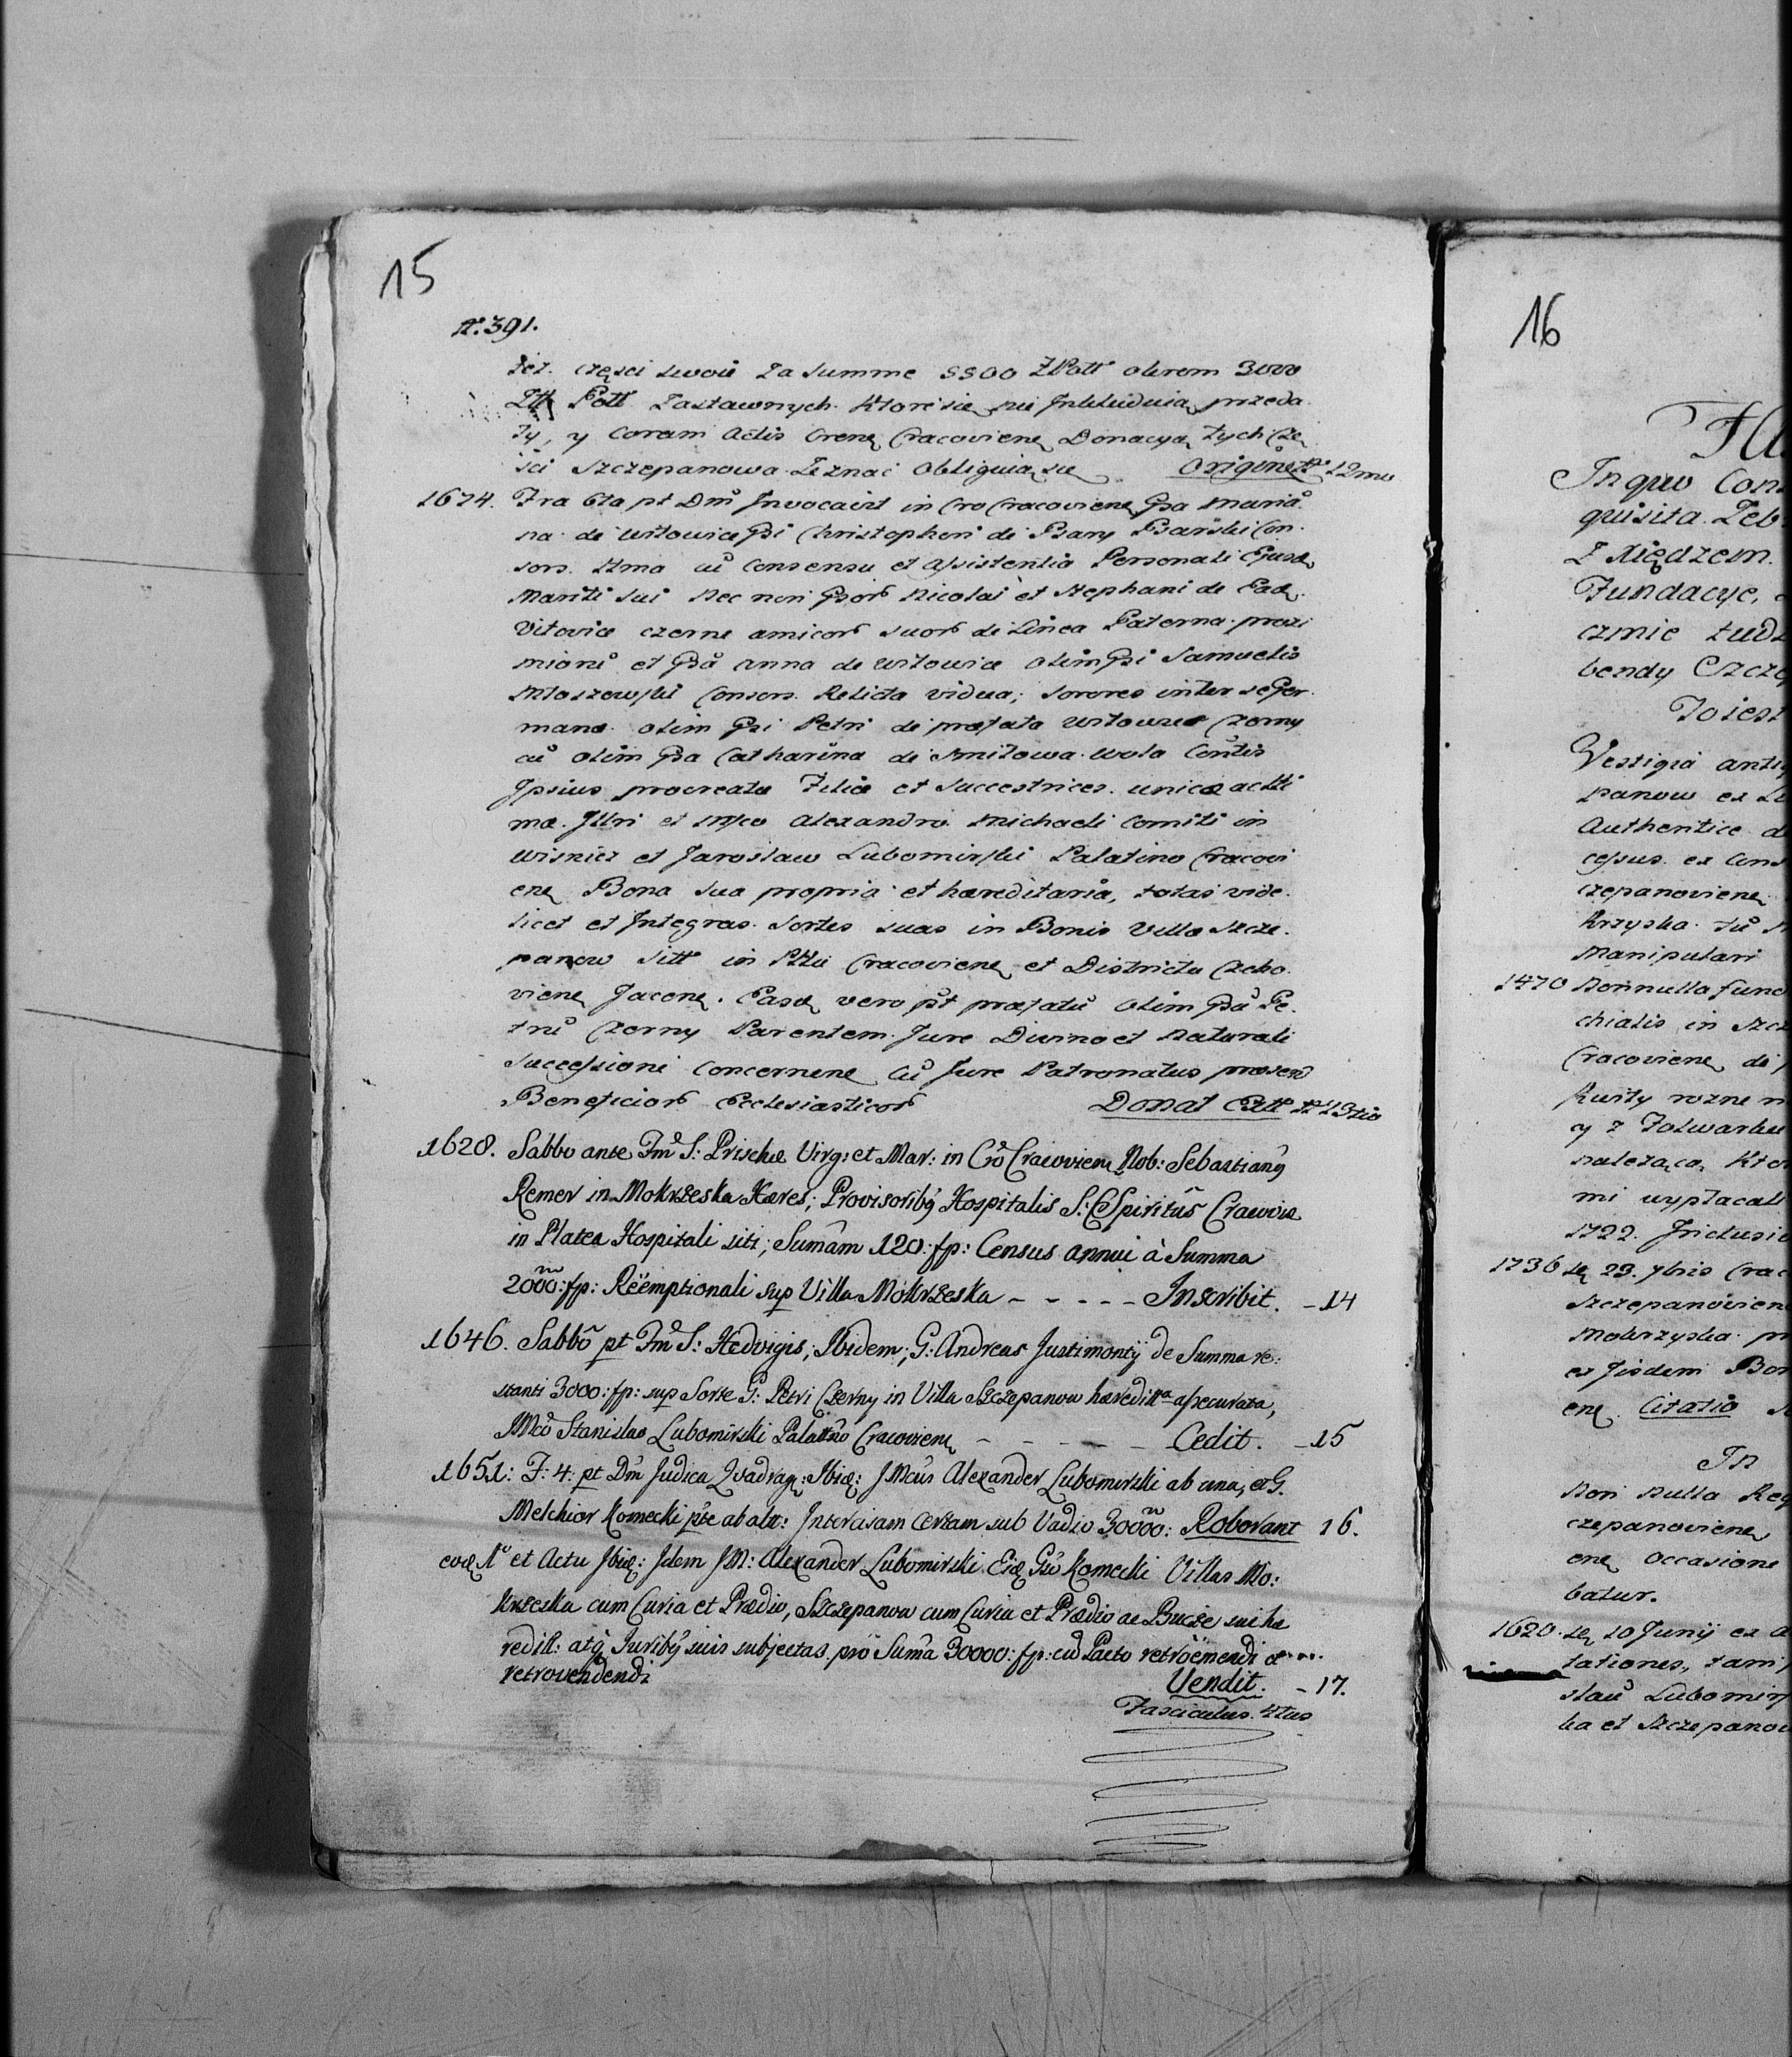 15
N. 391.
też. częsci swoie za summe 5500 ZPoll oberom 3000
Poll Zastawnych. Które się nie Inkluduią przeda
ży, y Coram Actis Crene Cracoviene Donacyą tych Czę
ści Szczepanowa Zeznać obliguią się Originett N 12mo
1674. Fra 6ta pt Dm Invocavit in Cro Cracoviene Gsa Maria
na de Witowice Gsi Christophori de Psary Psarski Con
sors. Ima cu Consensu et assistentia Personali Ejusd
Mariti sui nec non Gsor Nicolai et Stephani de Ead
Vitovice czerne amicor suor de Linea Paterna proxi
mioru et Gsa Anna de Witowice olim Gsi Samuelis
Mloszowski Consors. Relicta vidua; sorores inter se Ger
mana. olim Gsi Petri de præfata Witowice Czerny
cu olim Gsa Catharina de Smitowa. wola Contis
Ipsius procreata Filiæ et Successtrices. unicæ actti
ma. Illri et Mfco Alexandro. Michaeli Comiti in
Wisnicz et Jaroslaw Lubomirski Palatino Cracovi
ene Bona sua propria et hæreditaria, totas vide
licet et Integras. Sortes suas in Bonis Villa Szcze.
panow sitt in Pttu Cracoviene et Districtu Czcho
viene Jacene. Easd vero pt præfatu olim Gsu Pe.
tru Czerny Parentem Jure Divino et Naturali
successioni concernene Cu Jure Patronatus præsere
Beneficior Ecclesiasticor Donat Ettt N 13tio
1628. Sabbo ante Fm S: Priscæ Virg: et Mar: in Cro Cracoviene Nob: Sebastiany
Remer in Mokrzeska Hæres; Provisoriby Hospitalis S: Spiritus Cracoviæ
in Platea Hospitali siti; Sumam 120: fp: Census annui à Summa
2000: fp: Rëemptionali sup Villa Mokrzeska - - - - - Inscribit. - 14
1646. Sabbo pt Fm S: Hedvigis; Ibidem; G: Andreas Justimonty de Summa re:
stanti 3000: fp: sup Sorte G: Petri Czerny in Villa Szczepanow hæreditta assecurata,
JMco Stanislao Lubomirski Palattno Cracoviene - - - - - Cedit. - 15
1651: F: 4: pt Dm Judica Qvadrag: Ibid: JMcus Alexander Lubomirski ab una, et G.
Melchior Komecki pte ab alt: Intercisam certam sub Vadio 30000: Roborant 16.
eod A et Actu Ibid: Idem JM: Alexander Lubomirski Eid Gso Komecki Villas Mo:
krzeska cum Curia et Prædio, Szczepanow cum Curia et Prædio ac Bucze sui hæ
redit: atq Juriby suis subjectas. pro Suma 30000: fp: cu Pacto retröemendi et
retrovendendi Vendit. - 17.
Fasciculus. 4tus
16
In quo Con
quisita Zeb
z Między
Fundacye,
cznie tudz
bendy Szcze
To iest
Vestigia anti
panow ex
Authentice d
cessus ex Cons
czepanoviene
Krzyska. Tu
Manipulari
1470 Nonnulla func
chialis in Szcz
Cracoviene de
Kwity rozne
y z Folwarku
należącą. Kto
mi wypłacali
1722. Inclusi
1736 29. 7bris Crac
Szczepanoviene
Mokrzyska
ex Iisdem Bon
ene Citatio
In
Non nulla Reg
czepanoviene
ene Occasione
batur.
1620. 10 Junij ex
tationes, tam
slau Lubomir
ka et Szczepanow